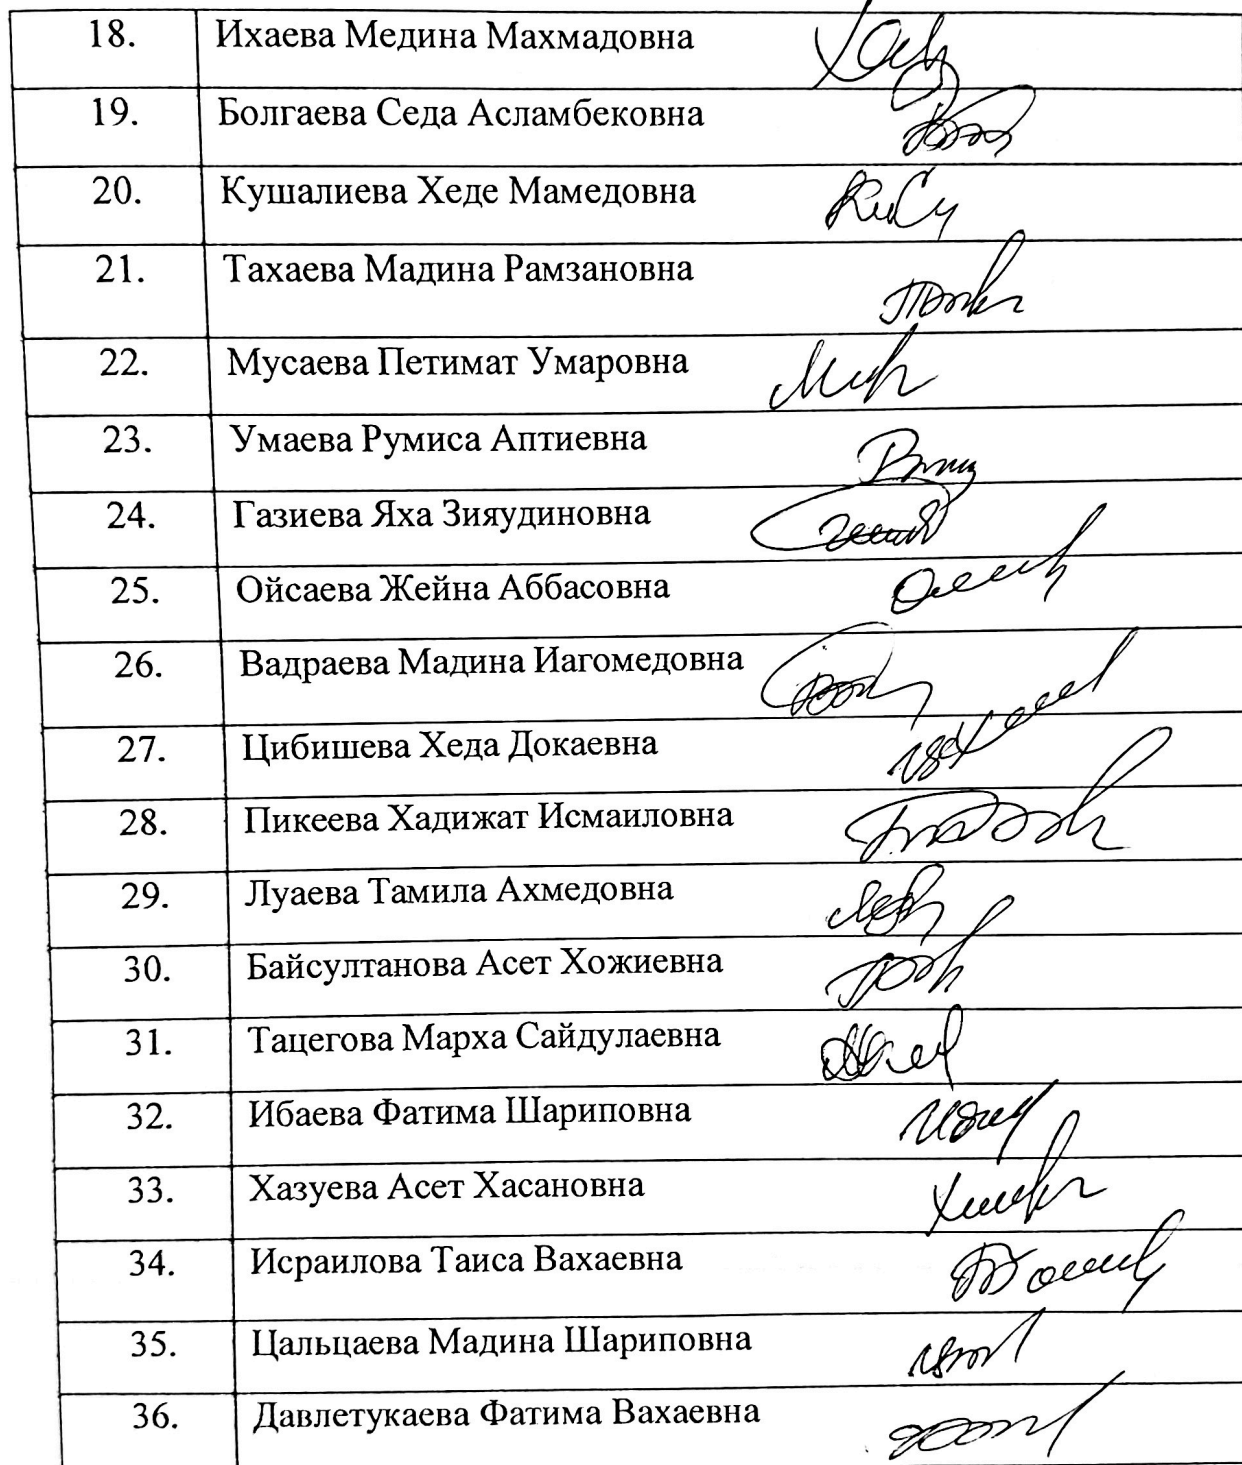 18. Ихаева Медина Махмадовна
19. Болгаева Седа Асламбековна
20. Кушалиева Хеде Мамедовна
21. Тахаева Мадина Рамзановна
22. Мусаева Петимат Умаровна
23. Умаева Румиса Аптиевна
24. Газиева Яха Зияудиновна
25. Ойсаева Жейна Аббасовна
26. Вадраева Мадина Иагомедовна
27. Цибишева Хеда Докаевна
28. Пикеева Хадижат Исмаиловна
29. Луаева Тамила Ахмедовна
30. Байсултанова Асет Хожиевна
31. Тацегова Марха Сайдулаевна
32. Ибаева Фатима Шариповна
33. Хазуева Асет Хасановна
34. Исраилова Таиса Вахаевна
35. Цальцаева Мадина Шариповна
36. Давлетукаева Фатима Вахаевна